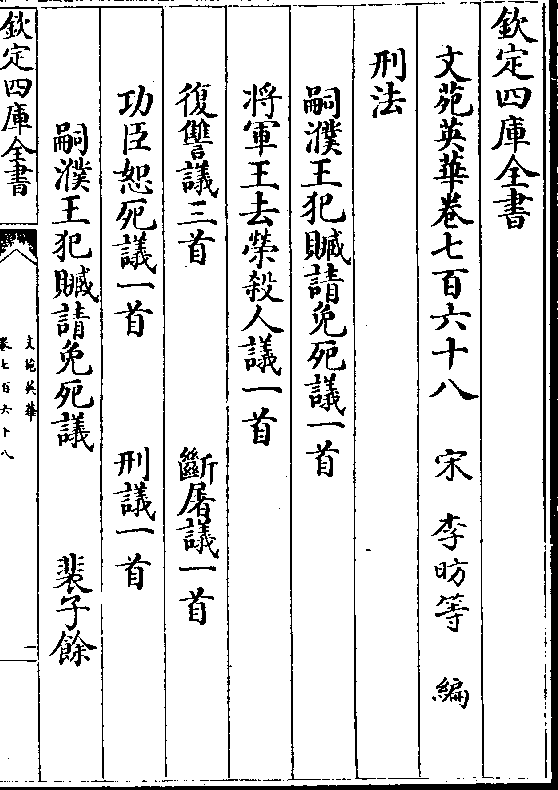 欽定四庫全書
文苑英華卷七百六十八 宋 李昉等 編
刑法
嗣濮王犯贓請免死議一首
将軍王去榮殺人議一首
復讐議三首 斷屠議一首
功臣恕死議一首 刑議一首
嗣濮王犯贓請免死議 裴子餘
欽定四庫全書
文苑英華
卷七百六十八
一